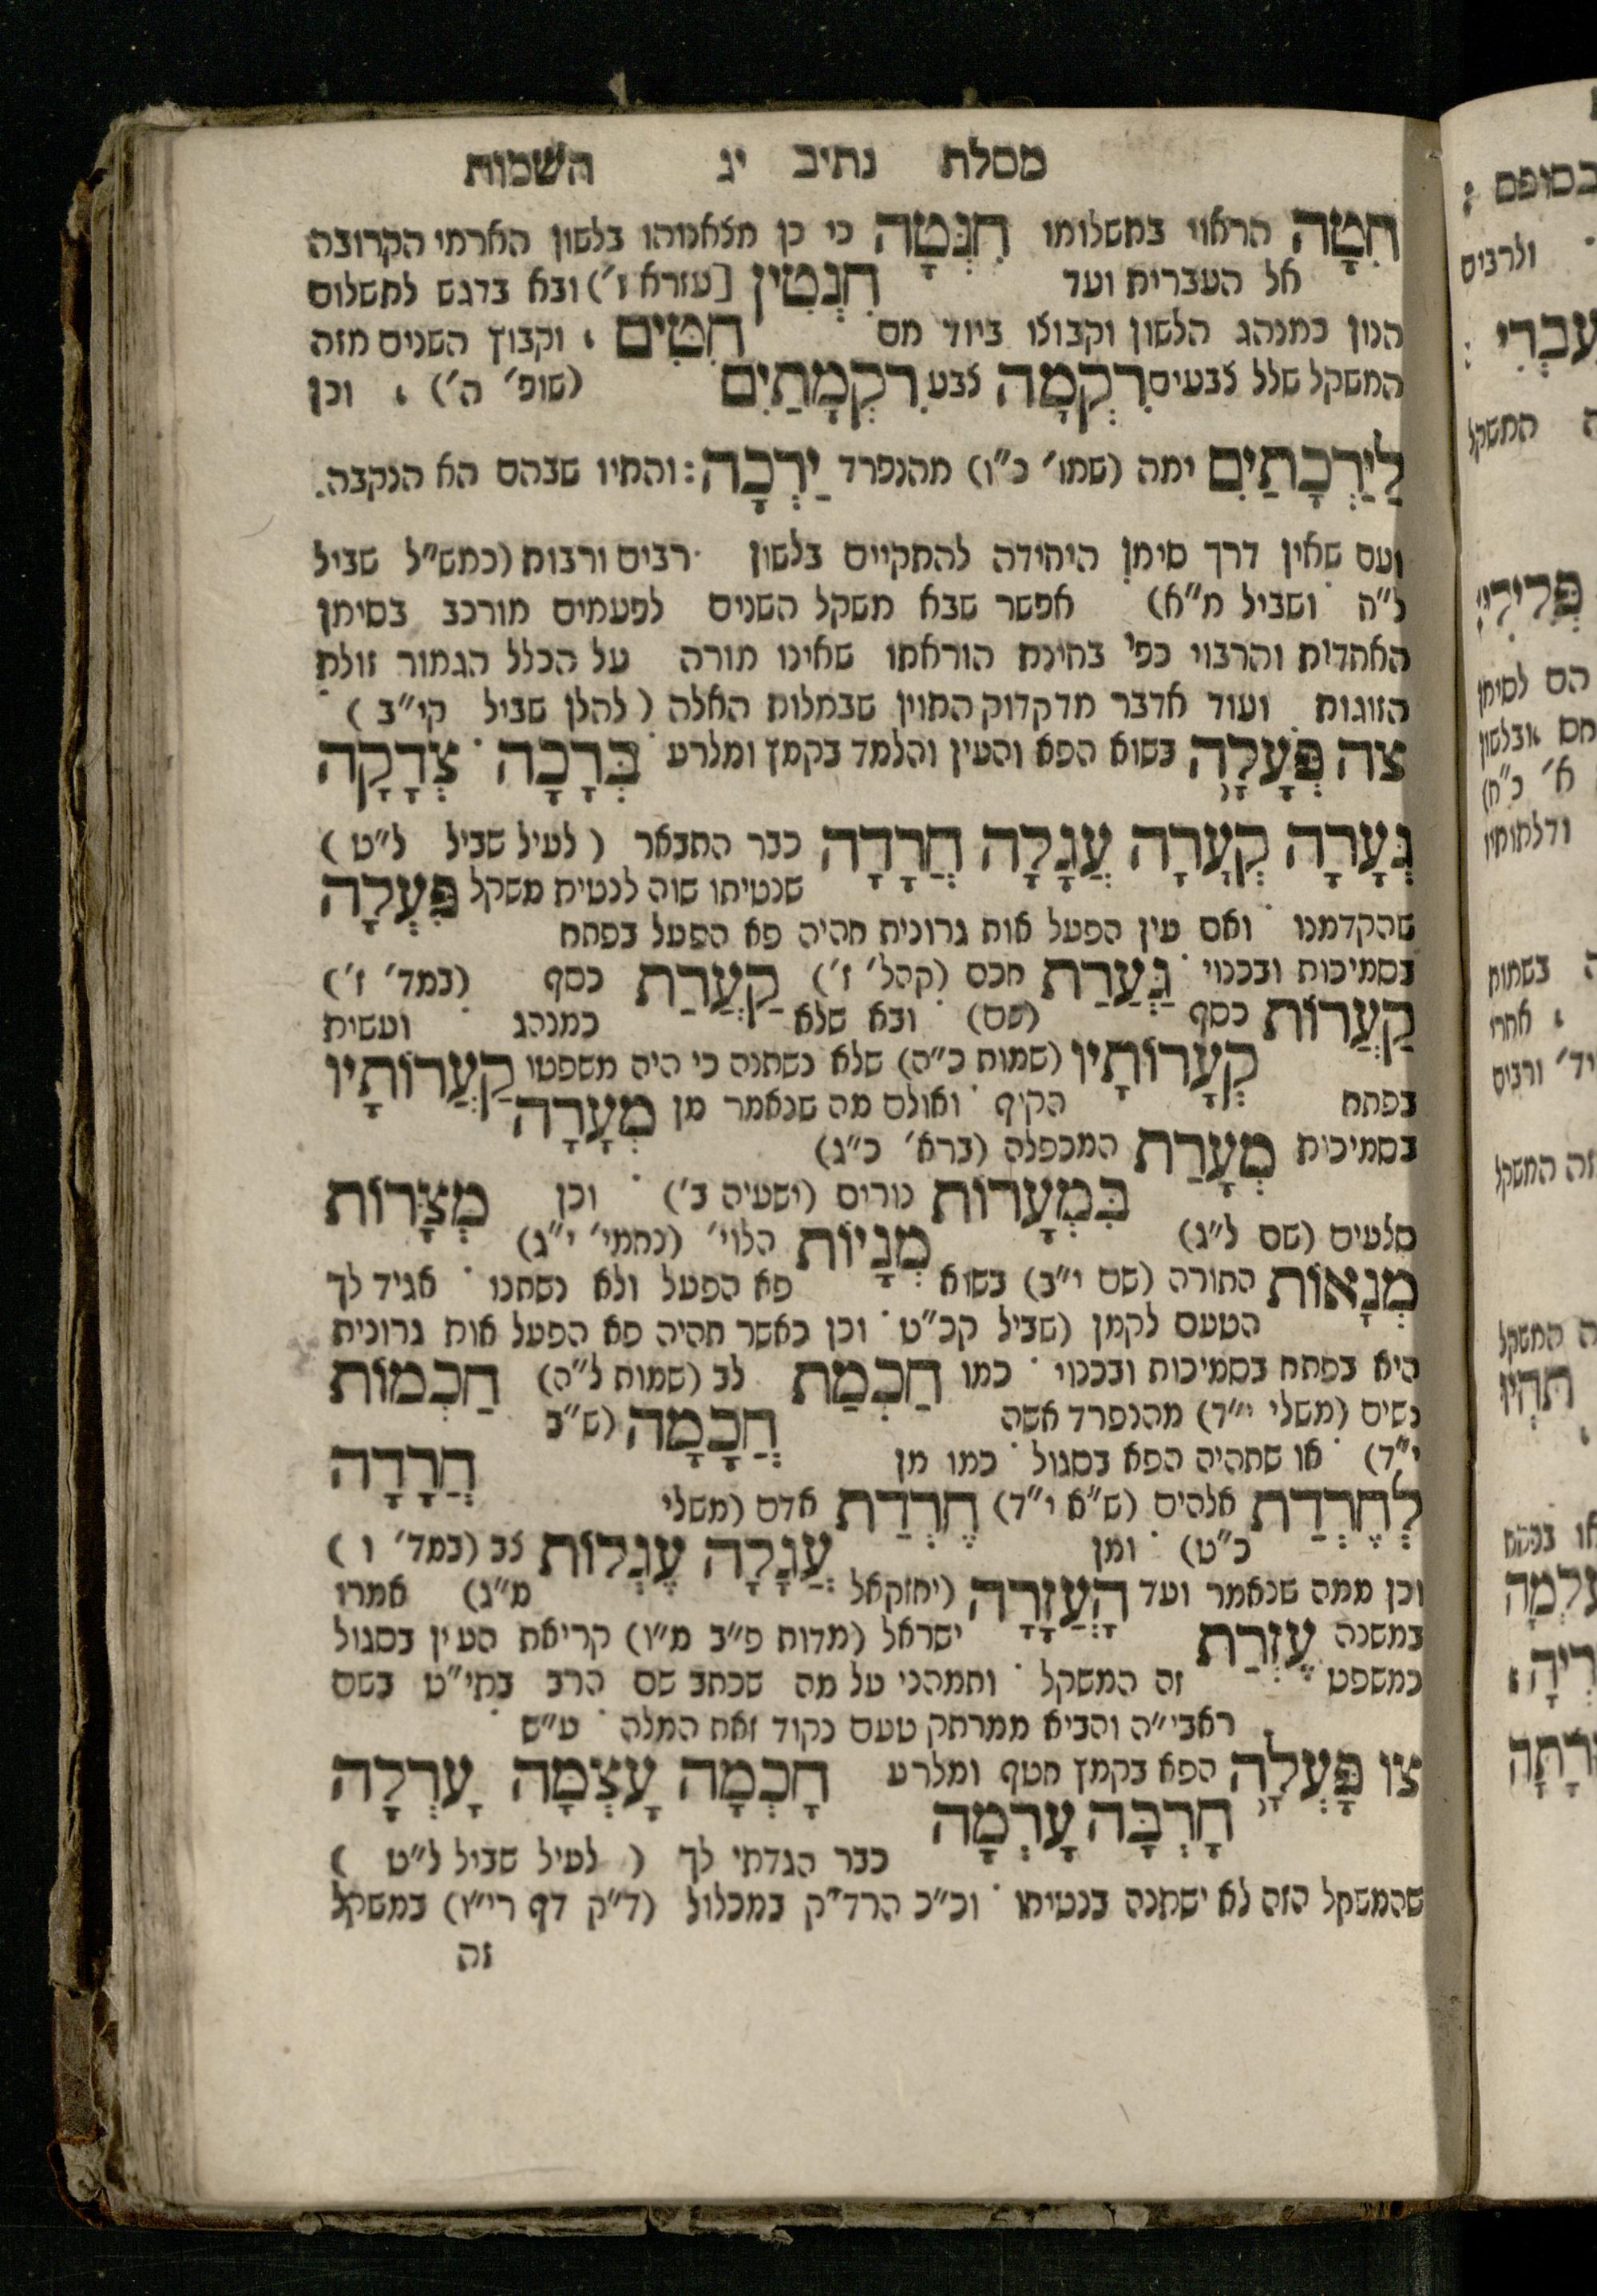 מסלת נתיב יג השמות
חִטָּה הראוי במשלומו חִנְּטָה כי כן מצאנוהו בלשון הארמי הקרובה
אל העברית ועד חִנְטִין [עזרא ז') ובא בדגש לתשלום
הנון כמנהג הלשון וקבוצו ביוד מם חִטִּים , וקבוץ השנים מזה
המשקל שלל צבעים רִקְמָה צבע רִקְמָתַיִם (שופ' ה') , וכן
לַיַּרְכָתַיִם ימה (שמו' כ"ו) מהנפרד יַרְכָה : והתיו שבהם הא הנקבה.
ועם שאין דרך סימן היחידה להתקיים בלשון רבים ורבות (כמש"ל שביל
ל"ה ושביל מ"א) אפשר שבא משקל השנים לפעמים מורכב בסימן
האחדות והרבוי כפי בחינת הוראתו שאינו מורה על הכלל הגמור זולת
הזוגות ועוד אדבר מדקדוק התוין שבמלות האלה (להלן שביל קי"ב)
צה פְּעָלָה בשוא הפא והעין והלמד בקמץ ומלרע בְּרָכָה צְדָקָה
גְּעָרָה קְעָרָה עֲגָלָה חֲרָדָה כבר התבאר (לעיל שביל ל"ט)
שנטיתו שוה לנטית משקל פִּעְלָה
שהקדמנו ואם עין הפעל אות גרונית תהיה פא הפעל בפתח
בסמיכות ובכנוי גַּעֲרַת חכם (קהל' ז') קַעֲרַת כסף (במד' ז')
קַעֲרוֹת כסף (שם) ובא שלא כמנהג ועשית
קְעָרוֹתָיו (שמות כ"ה) שלא נשתנה כי היה משפטו קַעֲרוֹתָיו
בפתח הקוף ואולם מה שנאמר מן מְעָרָה
בסמיכות מְעָרַת המכפלה (ברא' כ"ג)
בִּמְעָרוֹת צורים (ישעיה ב') וכן מְצָרוֹת
סלעים (שם ל"ג) מְנָיוֹת הלוי' (נחמי' י"ג)
מְנָאוֹת התורה (שם י"ב) בשוא פא הפעל ולא נשתנו אגיד לך
הטעם לקמן (שביל קכ"ט וכן כאשר תהיה פא הפעל אות גרונית
היא בפתח בסמיכות ובכנוי כמו חַכְמַת לב (שמות ל"ה) חַכְמוֹת
נשים (משלי י"ד) מהנפרד אשה חֲכָמָה (ש"ב
י"ד) או שתהיה הפא בסגול כמו מן חֲרָדָה
לְחֶרְדַּת אלהים (ש"א י"ד) חֶרְדַּת אדם (משלי
כ"ט) ומן עֲגָלָה עֶגְלוֹת צב (במד' ו)
וכן ממה שנאמר ועד הָעֲזָרָה (יחזקאל מ"ג) אמרו
במשנה עֶזְרַת ישראל (מדות פ"ב מ"ו) קריאת העין בסגול
כמשפט זה המשקל ותמהני על מה שכתב שם הרב בתי"ט בשם
ראבי"ה והביא ממרחק טעם נקוד זאת המלה ע"ש
צו פָּעְלָה הפא בקמץ חטף ומלרע חָכְמָה עָצְמָה עָרְלָה
חָרְבָּה עָרְמָה
כבר הגדתי לך (לעיל שביל ל"ט)
שהמשקל הזה לא ישתנה בנטיתו וכ"כ הרד"ק במכלול (ד"ק דף רי"ו) במשקל
זה